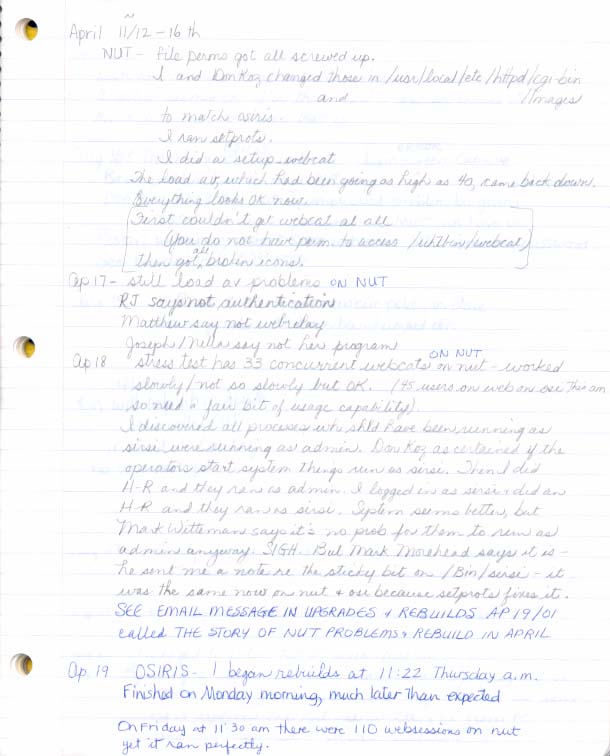 April 11/12 - 16 th
NUT - file perms got all screwed up.
I and Don Koz changed those in /usr/local/etc/httpd/cgi-bin
and /Images
to match osiris.
I ran setprots.
I did a setup-webcat
The load av, which had been going as high as 40, came back down.
Everything looks OK now.
First couldn't get webcat at all
(You do not have perm to access /uhtbin/webcat)
then got all broken icons.
Ap 17 - still load av problems ON NUT
RJ says not authentication
Matthew say not webrelay
Joseph/Nella say not her program
Ap 18 stress test has 33 concurrent webcats ON NUT on nut - worked
slowly/not so slowly but OK. (45 users on web on this am
so need a fair bit of usage capability).
I discovered all processes who shld have been running as
sirsi were running as admin. Don Koz ascertained if the
operators start system things run as sirsi. Then I did
H-R and they ran as admin. I logged in as sirsi + did an
H-R and they ran as sirsi. System seems better, but
Mark Witteman says it's no prob for them to run as
admin anyway. SIGH. But Mark Morehead says it is -
he sent me a note re the sticky bit on /Bin/sirsi - it
was the same now on nut & osi because setprots fixes it.
SEE EMAIL MESSAGE IN UPGRADES & REBUILDS AP 19/01
called THE STORY OF NUT PROBLEMS & REBUILD IN APRIL
Ap. 19 OSIRIS - I began rebuilds at 11:22 Thursday a.m.
Finished on Monday morning, much later than expected
On Friday at 11:30 am there were 110 websessions on nut
yet it ran perfectly.